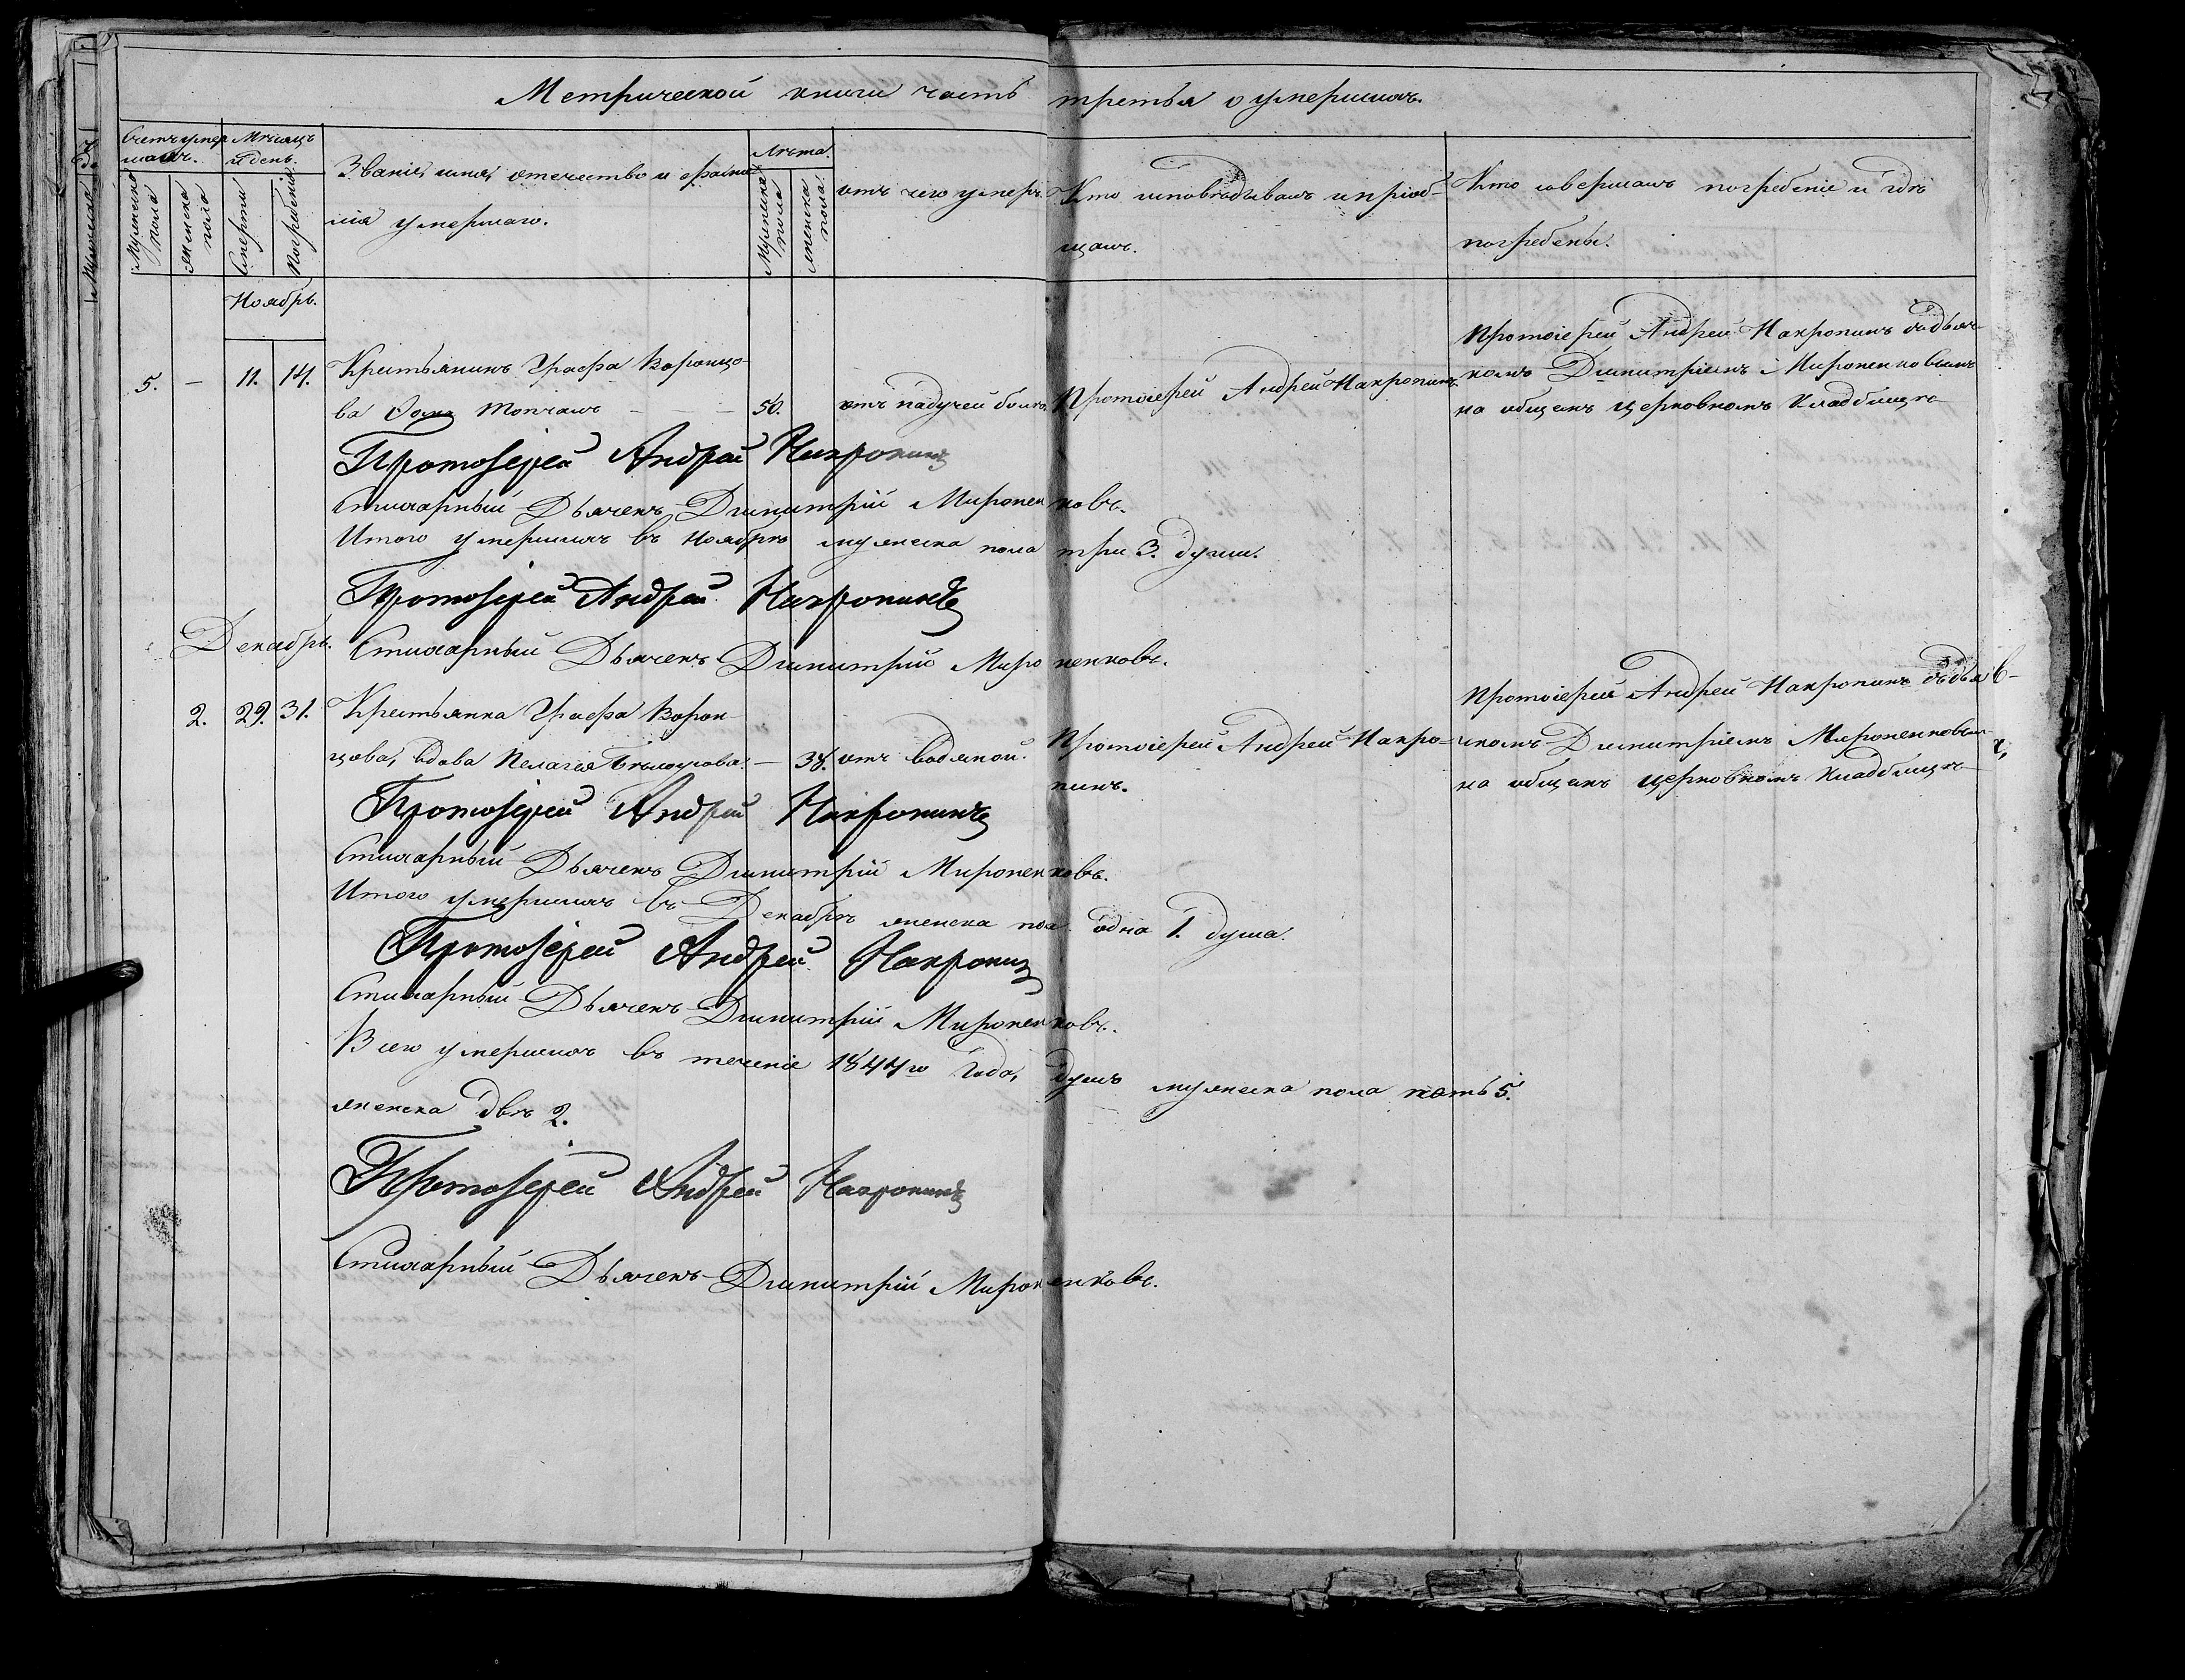 Метрической книги часть третья о умершихъ.
Счетъ умер
шихъ.
Мѣсяцъ
и день.
Мужеска
пола
женска
пола
Смерти
Погребенія.
Званіе, имя, отечество и фами
лія умершаго.
Лѣта.
Мужеска
пола
женска
пола.
отъ чего умеръ.
Кто исповѣдывалъ и пріоб-
щалъ.
Кто совершалъ погребеніе и гдѣ
погребены.
Ноябрь.
5. — 11. 14. Крестьянинъ Графа Воронцо-
ва Толчахъ — 50. отъ падучей
Протоіерей Андрей Накропинъ.
Протоіерей Андрей Накропинъ съ дьяч-
комъ Димитріемъ Мироненковымъ
на общемъ церковномъ кладбищѣ
Протоіерей Андрей Накропинъ
Стихарный Дьячекъ Димитрій Мироненковъ.
Итого умершихъ въ Ноябрѣ мужеска пола три 3. души.
Протоіерей Андрей Накропинъ
Стихарный Дьячекъ Димитрій Мироненковъ.
Декабрь.
2. 29. 31. Крестьянка Графа Ворон-
цова, вдова Пелагея — 38. отъ водяной.
Протоіерей Андрей Накро-
пинъ.
Протоіерей Андрей Накропинъ съ дьяч-
комъ Димитріемъ Мироненковым
на общемъ церковномъ кладбищѣ
Протоіерей Андрей Накропинъ
Стихарный Дьячекъ Димитрій Мироненковъ.
Итого умершихъ въ Декабрѣ женска пол одна 1. душа.
Протоіерей Андрей Накропинъ
Стихарный Дьячекъ Димитрій Мироненковъ.
Всего умершихъ въ теченіе 1844го Года, душъ мужеска пола пять 5.
женска двѣ 2.
Протоіерей Андрей Накропинъ
Стихарный Дьячекъ Димитрій Мироненковъ.